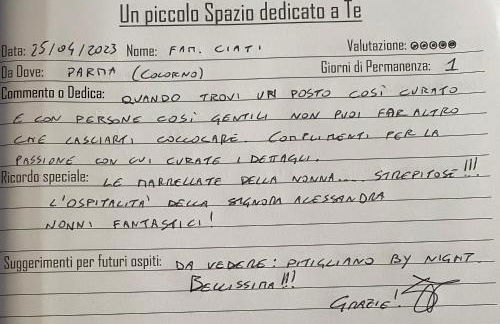 Un piccolo Spazio dedicato a Te
Data: 25/04/2023 Nome: FAM. CIATI Valutazione:
Da Dove: PARMA (COLORNO) Giorni di Permanenza: 1
Commento o Dedica: QUANDO TROVI UN POSTO COSÌ CURATO
E CON PERSONE COSÌ GENTILI NON PUOI FAR ALTRO
CHE LASCIARTI COCCOLARE. COMPLIMENTI PER LA
PASSIONE CON CUI CURATE I DETTAGLI.
Ricordo speciale: LE MARMELLATE DELLA NONNA.... STREPITOSE!!!
L'OSPITALITÀ DELLA SIGNORA ALESSANDRA
NONNI FANTASTICI!
Suggerimenti per futuri ospiti: DA VEDERE: PITIGLIANO BY NIGHT.
BELLISSIMA!!!
GRAZIE!